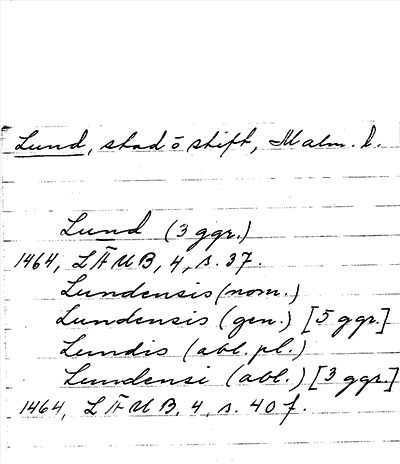 Lund, stad o stift, Malm. l.
Lund (3 ggr.)
1464, LÄUB, 4, s. 37.
Lundensis (nom.)
Lundensis (gen.) [5 ggr.]
Lundis (abl. pl.)
Lundensi (abl.) [3 ggr.]
1464, LÄUB, 4, s. 40 f.